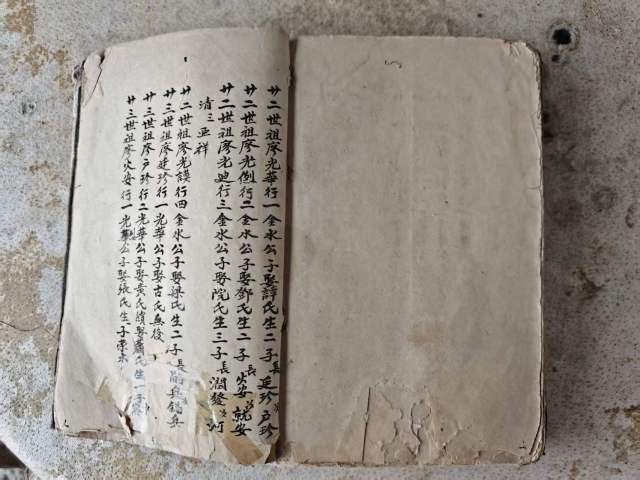 廿二世祖廖光華行一金水公子娶譚氏生二子長廷珍次戶珍
廿二世祖廖光倒行二金水公子娶鄧氏生二子長火安次就安
廿二世祖廖光廸行三金水公子娶阮氏生三子長潤發次河
清三亚祥
廿二世祖廖光謨行四金水公子娶梁氏生二子長
廿三世祖廖廷珍行一光華公子娶古氏無後
廿三世祖廖戶珍行二光華公子娶黃氏續娶蕭氏生一子
廿三世祖廖火安行一光公子娶張氏生子